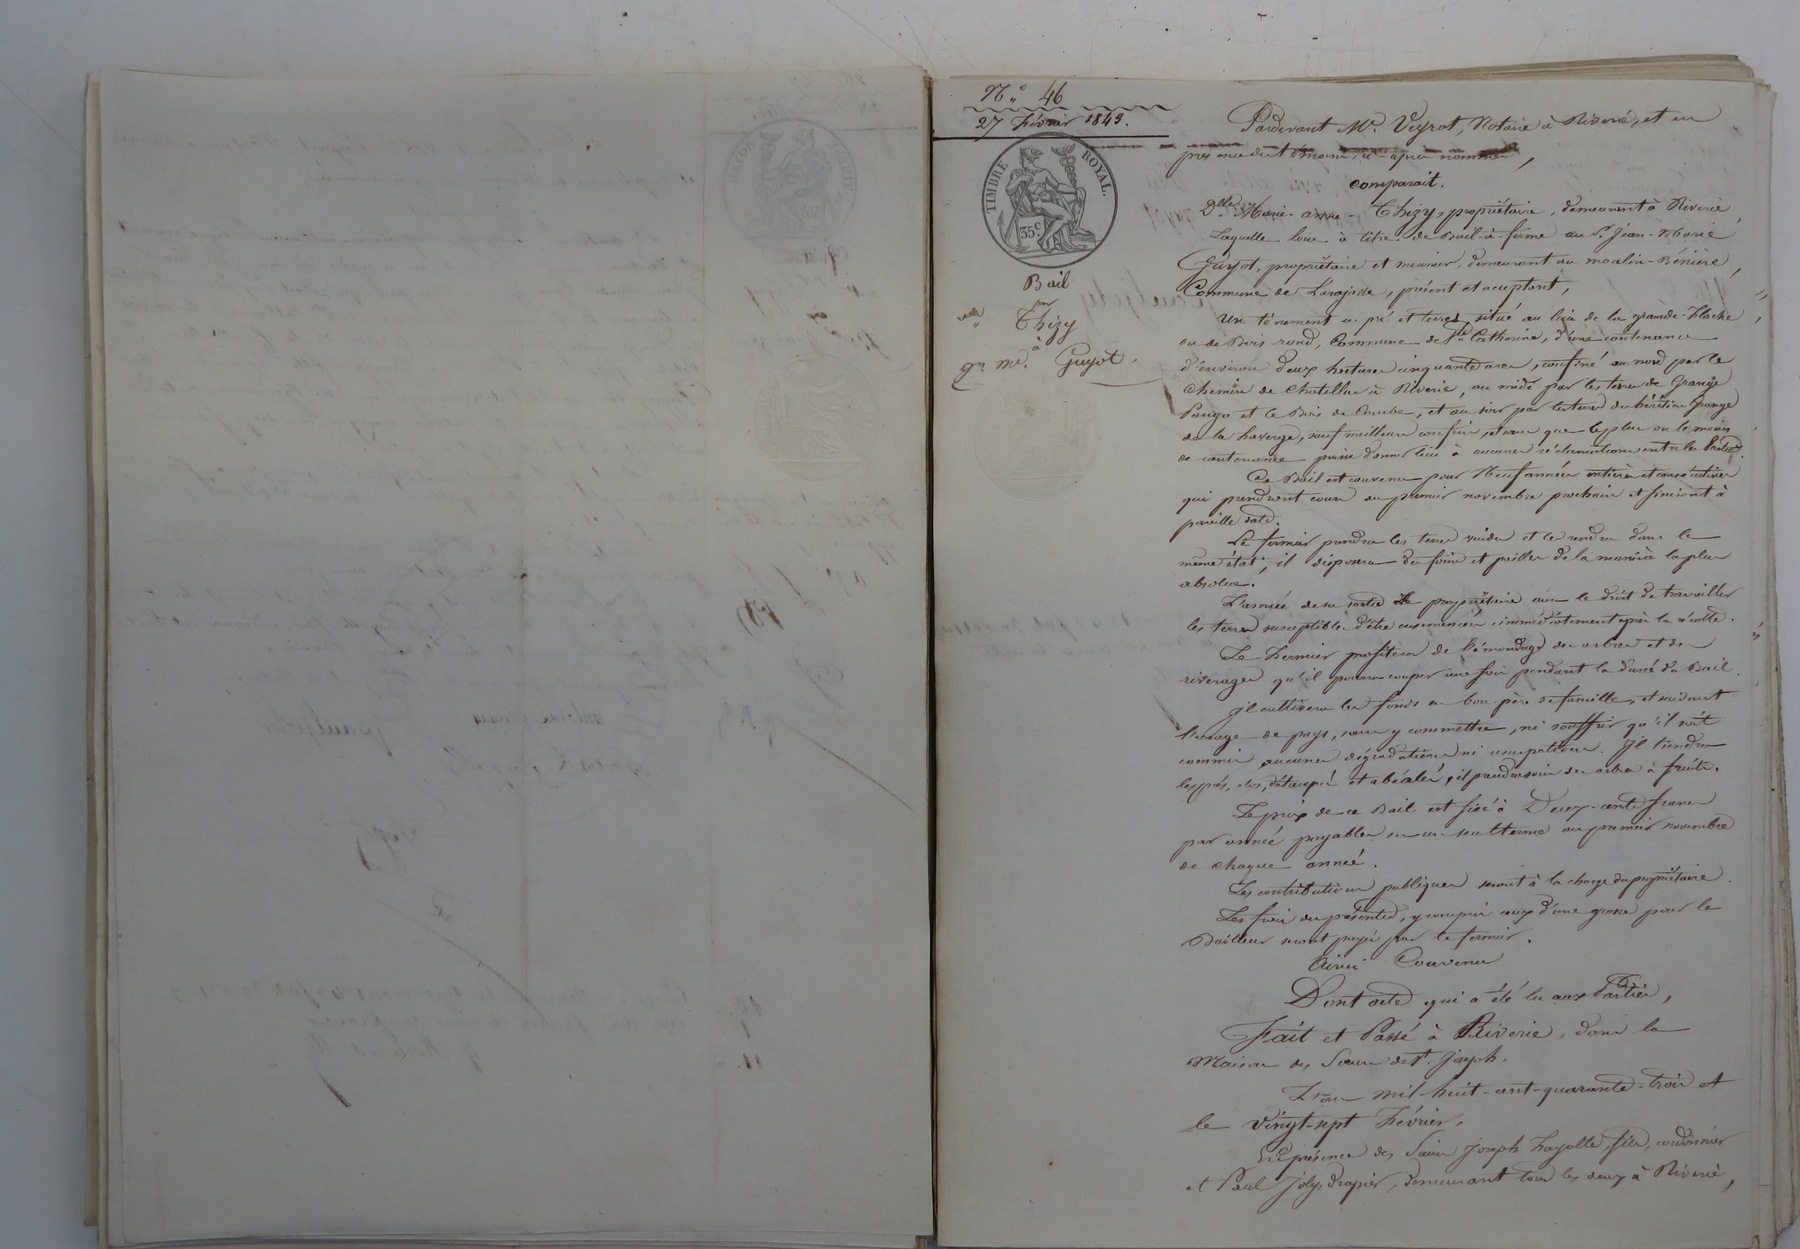 N° 46
27 Février 1843.
TIMBRE ROYAL.
35 c
Bail
par
Dlle Thizy
à
Guyot.
Pardevant Me. Veyrot, Notaire à Riverie, et en
présence des témoins, ci-après nommés,
comparait.
Dlle Marie-anne Thizy, propriétaire, demeurant à Riverie,
Laquelle loue à titre de Bail-à-ferme au Sr. Jean-Marie
Guyot, propriétaire et meunier, demeurant au moulin-Bénière,
Commune de Larajasse, présent et acceptant,
Un ténement en pré et terres, situé au lieu de la grande-
ou de Bois rond, Commune de Ste Catherine, d'une contenance
d'environ deux hectares cinquante ares, confiné au nord par le
chemin de Chatillon à Riverie, au midi par les terres de Grange
et le Bois de Combe, et au soir par les terres des héritiers Grange
de la, sauf meilleurs confins, et sans que le plus ou le moins
de contenance puisse donner lieu à aucunes réclamations entre les Parties.
Ce Bail est convenu pour Neuf années entières et consécutives
qui prendront cours au premier novembre prochain et finiront à
pareille date.
Le fermier prendra les terres vuides et les rendra dans le
même état; il disposera des foins et pailles de la manière la plus
absolue.
L'année de sa sortie le propriétaire aura le droit de travailler
les terres susceptibles d'être ensemencées immédiatement après la récolte.
Le Fermier profitera de l'émondage des arbres et des
rivérages qu'il pourra couper une fois pendant la durée du Bail.
Il cultivera les fonds en bon père de famille, et suivant
l'usage de pays, sans y commettre, ni souffrir qu'il soit
commis aucunes dégradations ni usurpations. Il tiendra
les prés, clos, détaupés et abéalés, il prendra soin des arbres à fruits.
Le prix de ce Bail est fixé à Deux-cents francs
par année payables en un seul terme au premier novembre
de chaque année.
Les contributions publiques seront à la charge du propriétaire.
Les frais des présentes, y compris ceux d'une grosse pour le
Bailleur seront payés par le fermier.
Ainsi Convenu
Dont acte qui a été lu aux Parties,
Fait et Passé à Riverie, dans la
Maison des Sœurs de St. Joseph.
L'an mil-huit-cent-quarante-trois et
le vingt-sept Février,
En présence des Sieurs Joseph Fayolle, fils, cordonnier
et Paul Joly, drapier, demeurant tous les deux à Riverie,